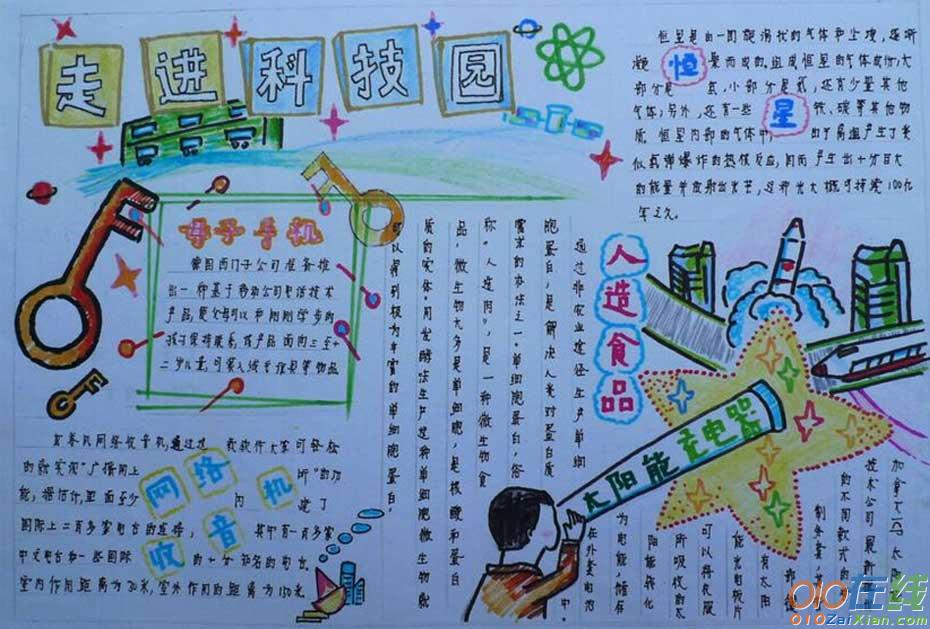 走进科技园
恒星是由一团旋涡状的气体和尘埃,逐渐
凝 恒 聚而成的,组成恒星的气体成份,大
部分是 氢,小部分是氦,还有少量其他
气体;另外,还有一些 星 铁、碳等其他物
质,恒星内部的气体中 由于高温产生了类
似氢弹爆炸的热核反应,因而产生出十分巨大
的能量并放射出光芒,这种光大概可持续100亿
年之久。
母子手机
德国西门子公司准备推
出一种基于移动公司电话技术
产品,使父母可以和刚刚学步的
孩子保持联系,该产品面向三至
二岁儿童,可装入线专 等物品
人造食品
通过非农业途径生产单细
胞蛋白,是解决人类对蛋白质
需求的办法之一。单细胞蛋白,俗
称"人造肉",是一种微生物食
品,微生物大多是单细胞,是核酸和蛋白
质的实体。用发酵法生产这种单细胞微生物就
可以得到极为丰富的单细胞蛋白。
网络收音机
网络收音机,通过这 我软件大家可轻松
的就实现"广播网上 听"的功
能,据估计,里面至少 内 建了
国际上二百多家电台的连接, 其中有一百多家
中文电台和一些国际 的十分知名的电台,
室内作用距离为30米,室外作用的距离为150米
太阳能充电器
加拿大ICP太阳能
技术公司最新
的不同款式的
制外套,
部
有太阳
能光电板片
可以将衣服
所吸收的太
阳能转化
为电能,储存
在外套的电池
中。
010在线
010ZaiXian.com